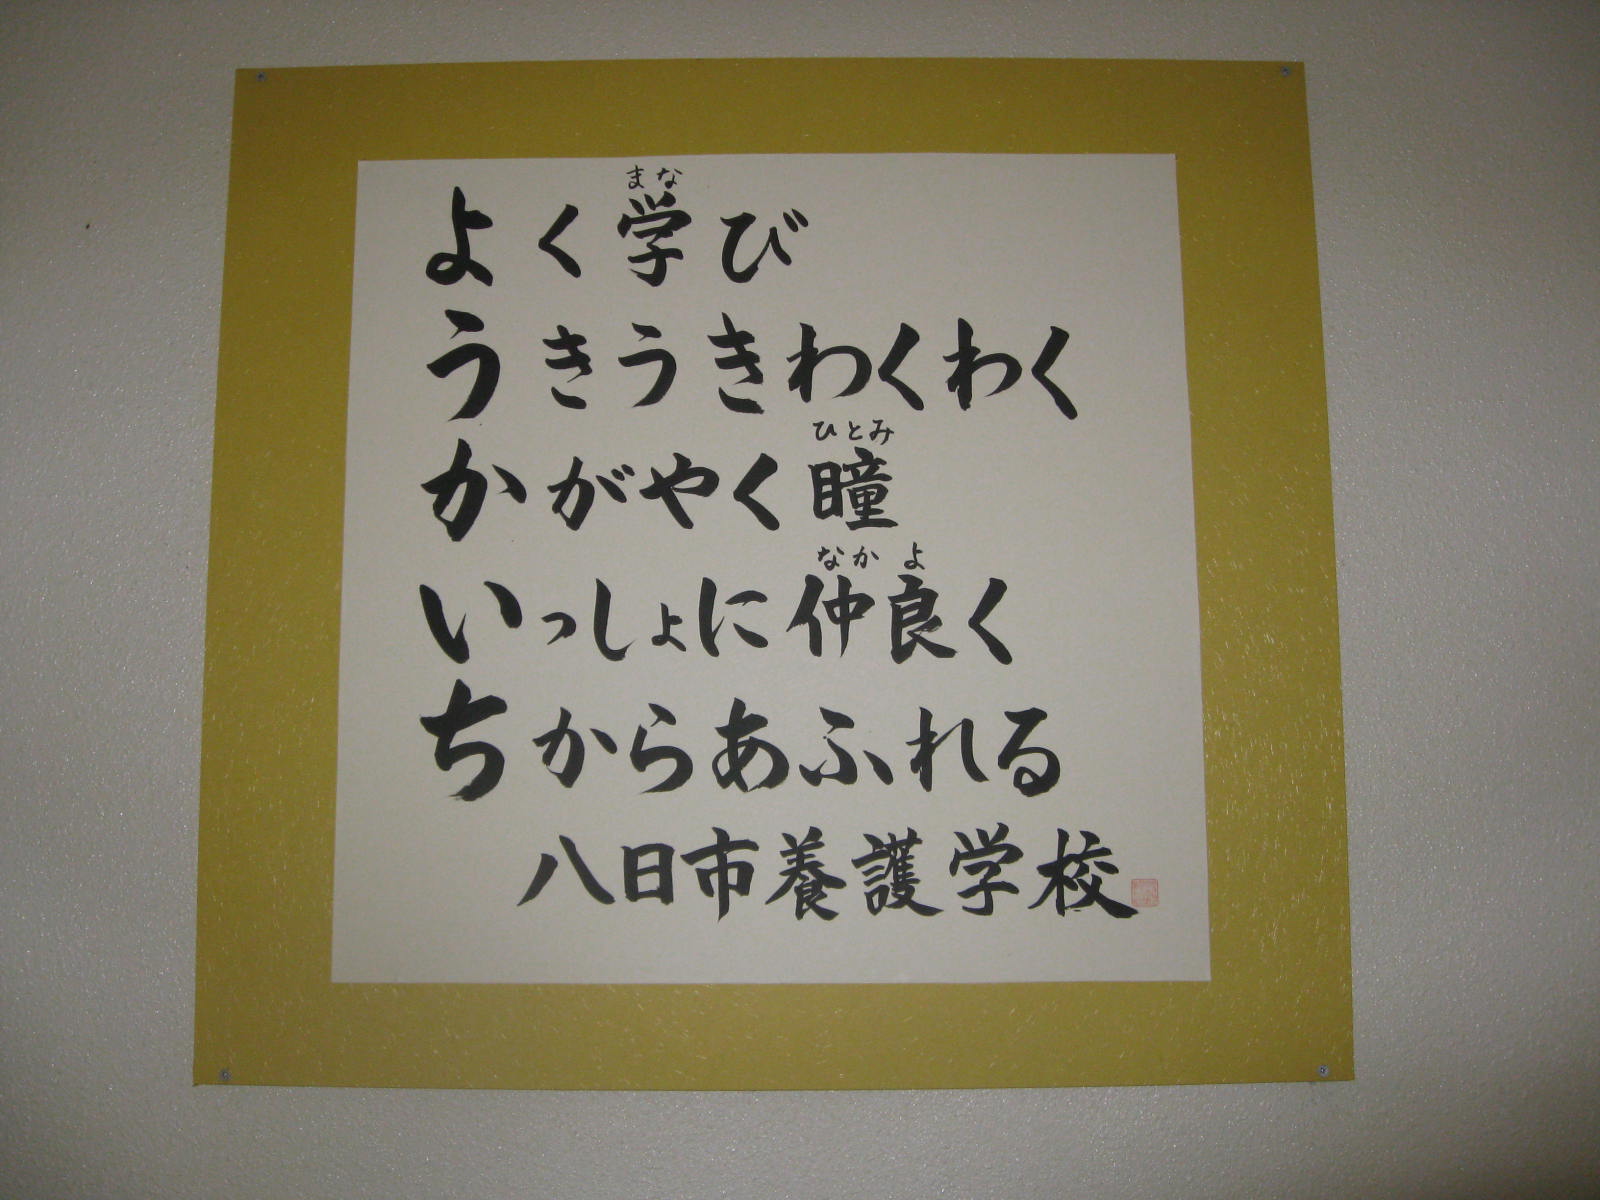 まな
よく学び
うきうきわくわく
ひとみ
かがやく瞳
なかよ
いっしょに仲良く
ちからあふれる
八日市養護学校